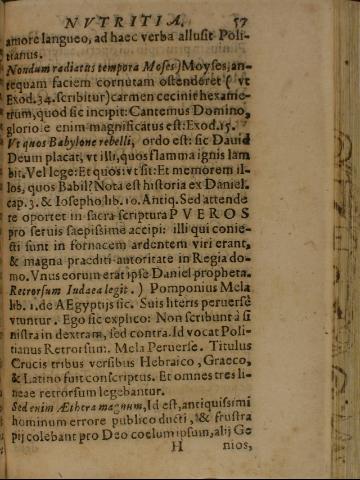 NVTRITIA. 57
amore langueo, ad haec verba allusit Poli-
tianus.
Nondum radiatus tempora Moses) Moyses, an-
tequam faciem cornutam ostenderet ( vt
Exod. 34. scribitur) carmen cecinit hexame-
trum, quod sic incipit: Cantemus Domino,
gloriole enim magnificatus est: Exod. 15.
Vt quos Babylone rebelli, ordo est: sic Dauid
Deum placat, vt illi, quos flamma ignis lam
bit. Vel lege: Et quos: vt sit: Et memorem il-
los, quos Babil? Nota est historia ex Daniel.
cap. 3. & Iosepho lib. 10. Antiq. Sed attende
te oportet in sacra scriptura PVEROS
pro seruis saepissime accipi: illi qui conie-
cti sunt in fornacem ardentem viri erant,
& magna praediti autoritate in Regia do-
mo. Vnus eorum erat ipse Daniel propheta.
Retrorsum Iudaea legit. ) Pomponius Mela
lib. 1. de AEgyptijs sic. Suis literis peruersè
vtuntur. Ego sic explico: Non scribunt à si
nistra in dextram, sed contra. Id vocat Poli-
tianus Retrorsum: Mela Peruerse. Titulus
Crucis tribus versibus Hebraico, Graeco,
& Latino fuit conscriptus. Et omnes tres li
neae retrorsum legebantur.
Sed enim Æthera magnum, Id est, antiquissimi
hominum errore publico ducti, & frustra
pij colebant pro Deo coelum ipsum, alij Ge
H nios,